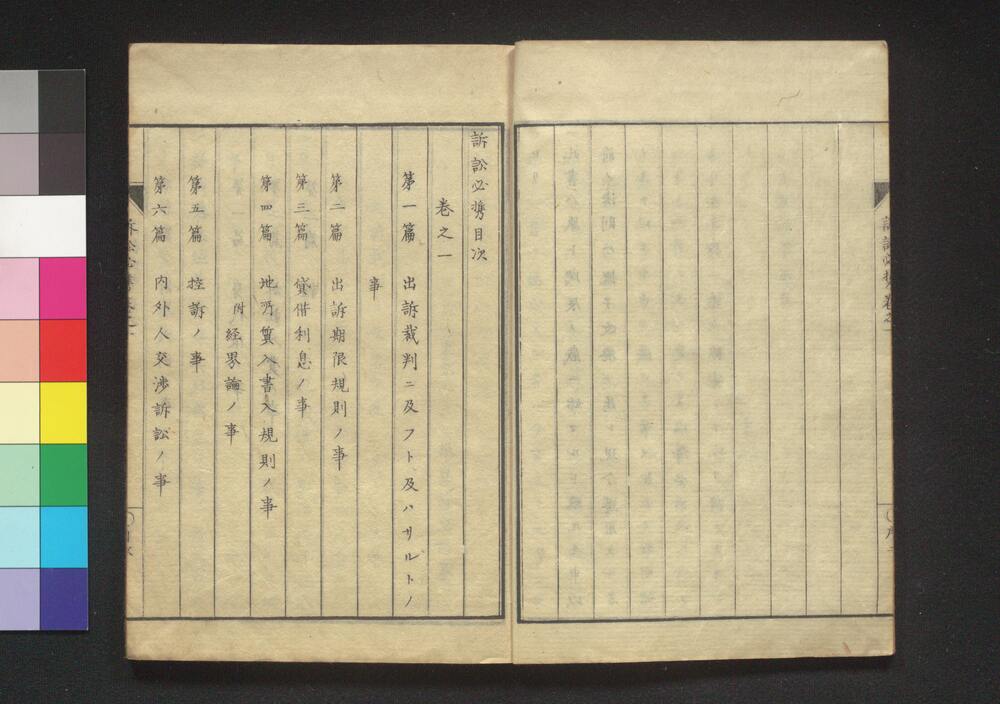 訴訟必携目次
卷之一
第一篇 出訴裁判ニ及フト及ハサルトノ
事
第二篇 出訴期限規則ノ事
第三篇 貸借利息ノ事
第四篇 地所質入書入規則ノ事
附 経界論ノ事
第五篇 控訴ノ事
第六篇 内外人交渉訴訟ノ事